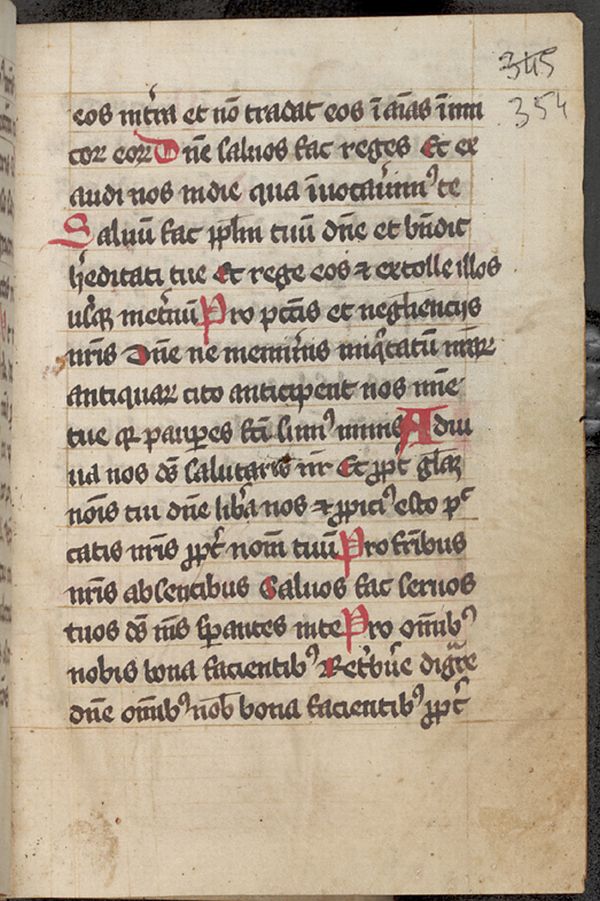 345
354
eos int̄ra et nō tradat eos ī aīas īimi
cor̄ eor̄ Dn̄e saluos fac reges Et ex
audi nos in die qua īuocauīmꝰ te
Saluū fac ppl̄m tuū dn̄e et bn̄dic
h̄editati tue Et rege eos ⁊ extolle illos
usꝙ in et̄nū Pro pctīs et negligencijs
nr̄is Dn̄e ne memīnis iniq̄tatū nrāꝝ
antiquaꝝ cito anticipent nos mīe
tue qꝛ pauꝑes fcī sumꝰ nimis Adiu
ua nos ds̄ salutaris nr̄ Et ꝓpt̄ gl̄aꝫ
noīs tui dn̄e lib̄a nos ⁊ ꝓpiciꝰ esto pc̄
catis nr̄is ꝓpt̄ nom̄ tuū Pro fr̄ibus
nr̄is absentibus Saluos fac seruos
tuos ds̄ ms̄ sꝑantes in te Pro om̄ibꝰ
nobis bona facientibꝰ Ret̄bue dig̅re
dn̄e om̄ibꝰ nob̄ bona facientibꝰ ꝓpt̄